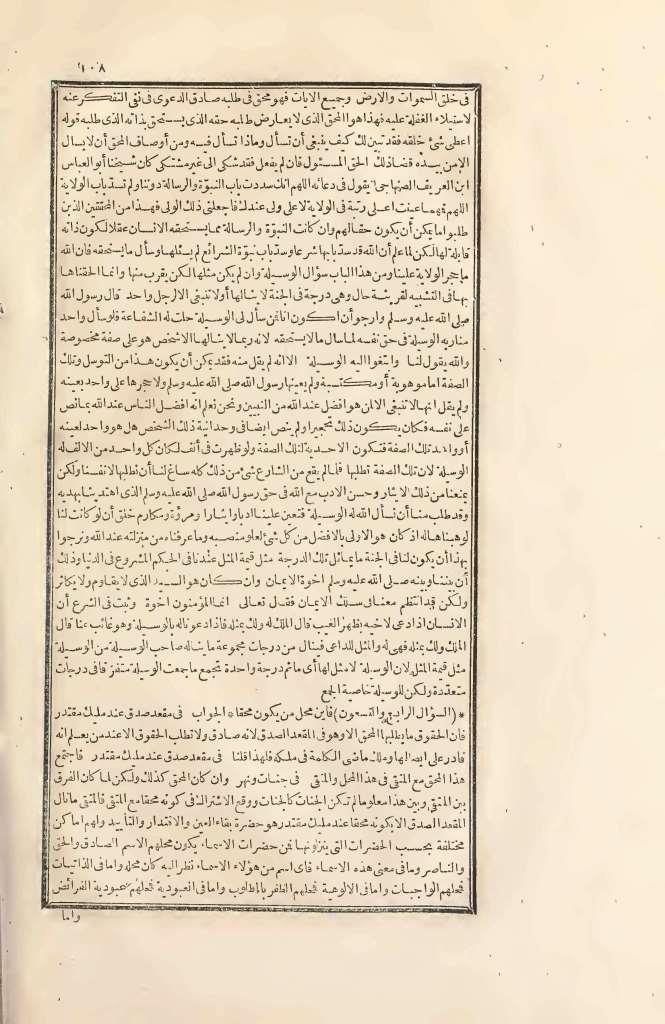 ١٠٨
فى خلق السموات والارض وجميع الايات فهو محق فى طلبه صادق الدعوى فى نفى التفكر عنه
لاستيلاء الغفلة عليه فهذا هو المحق الذى لا يعارض طلبه حقه الذى يستحق بذاته الذى طلبه قوله
اعطى كل شئ خلقه فقد تبين لك كيف ينبغى أن تسأل وماذا تسأل فيه ومن أوصاف المحق أن لا يسأل
الا من بيده قضاء ذلك الحق المسئول فان لم يفعل فقد شكى الى غير مشتكى كان شيخنا أبو العباس
ابن العريف الصنهاجى يقول فى دعائه اللهم انك سددت باب النبوة والرسالة دوننا ولم تسد باب الولاية
اللهم مهما عينت اعلى رتبة فى الولاية لاعلى ولى عندك فاجعلنى ذلك الولى فهذا من المحققين الذين
طلبوا ما يمكن أن يكون حقا لهم وان كانت النبوة والرسالة مما يستحقه الانسان عقلا لكون ذاته
قابلة لها لكن لما علم أن الله قد سد بابها شرعا وسد باب نبوة الشرائع لم يسئلها وسأل ما يستحقه فان الله
ما حجر الولاية علينا ومن هذا الباب سؤال الوسيلة وان لم يكن مثلها لكن يقرب منها وانما الحقناها
بها فى التشبيه لقرينة حال وهى درجة فى الجنة لا ينالها أولا تنبغى الا لرجل واحد قال رسول الله
صلى الله عليه وسلم وارجو أن اكون انا فمن سأل لى الوسيلة حلت له الشفاعة فلو سأل واحد
منا ربه الوسيلة فى حق نفسه لما سأل ما لا يستحقه لانه ربما لا ينالها الا شخص هو على صفة مخصوصة
والله يقول لنا وابتغوا اليه الوسيلة الا انه لم يقل منه فقد يمكن أن يكون هذا من التوسل وتلك
الصفة اما موهوبة أو مكتسبة ولم يعينها رسول الله صلى الله عليه وسلم ولا حجرها على واحد بعينه
ولم يقل انها لا تنبغى الا لمن هو افضل عند الله من النبيين ونحن نعلم انه افضل الناس عند الله بما نص
على نفسه فكان يكون ذلك تحجيرا ولم ينص ايضا فى وحدانية ذلك الشخص هل هو واحد لعينه
أو واحد تلك الصفة فتكون الاحدية لتلك الصفة ولو ظهرت فى ألف لكان كل واحد من الالف له
الوسيلة لان تلك الصفة تطلبها فلما لم يقع من الشارع شئ من ذلك كله ساغ لنا أن نطلبها لانفسنا ولكن
يمنعنا من ذلك الايثار وحسن الادب مع الله فى حق رسول الله صلى الله عليه وسلم الذى اهتدينا بهديه
وقد طلب منا أن نسأل الله له الوسيلة فتعين علينا ادبا وايثارا ومروءة ومكارم خلق أن لو كانت لنا
لوهبناها له اذ كان هو الاولى بالافضل من كل شئ لعلو منصبه وما عرفناه من منزلته عند الله ونرجوا
بهذا أن يكون لنا فى الجنة ما يماثل تلك الدرجة مثل قيمة المثل عندنا فى الحكم المشروع فى الدنيا وذلك
أن بيننا وبينه صلى الله عليه وسلم اخوة الايمان وان كان هو السيد الذى لا يقاوم ولا يكاثر
ولكن قد انتظم معنا فى سلك الايمان فقال تعالى انما المؤمنون اخوة وثبت فى الشرع أن
الانسان اذا دعى لاخيه بظهر الغيب قال الملك له ولك بمثله فاذا دعوناله بالوسيلة وهو غائب عنا قال
الملك ولك بمثله فهى له والمثل للداعى فينال من درجات مجموعة ما يناله صاحب الوسيلة من الوسيلة
مثل قيمة المثل لان الوسيلة لا مثل لها أى ما ثم درجة واحدة تجمع ما جمعت الوسيلة متفرقا فى درجات
متعددة ولكن للوسيلة خاصية الجمع
* (السؤال الرابع والتسعون) فاين محل من يكون محقا * الجواب فى مقعد صدق عند مليك مقتدر
فان الحقوق ما يطلبها المحق الا وهو فى المقعد الصدق لانه صادق ولا تطلب الحقوق الا عند من يعلم انه
قادر على ايصالها وملك ماضى الكلمة فى ملكه فلهذا قلنا فى مقعد صدق عند مليك مقتدر فاجتمع
هذا المحق مع المتقى فى هذا المحل والمتقى فى جنات ونهر وان كان المحق كذلك ولكن لما كان الفرق
بين المتقى وبين هذا معلوما لم تكن الجنات كالجنات ووقع الاشتراك فى كونه محقا مع المتقى فالمتقى ما نال
المقعد الصدق الا بكونه محقا عند مليك مقتدر هو حضرة بقاء العين والاقتدار والتأييد ولهم اماكن
مختلفة بحسب الحضرات التى ينزلونها فمن حضرات الاسماء يكون محلهم الاسم الصادق والحق
والناصر وما فى معنى هذه الاسماء فاى اسم من هؤلاء الاسماء نظر اليه كان محله واما فى الذاتيات
فمحلهم الواجبات واما فى الالوهية فمحلهم الظفر بالمطلوب واما فى العبودية فمحلهم عبودية الفرائض
واما